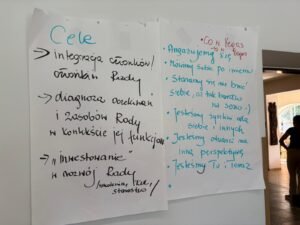 Cele
→ integracja członków/
członkiń Rady
→ diagnoza oczekiwań
i zasobów Rady
w kontekście jej funkcjo
→ „inwestowanie"
w rozwój Rady
• Co w Vegas
Vegas
• Angażujemy się
• Mówimy sobie po imieniu
• Staramy się nie brać
siebie, aż tak bardzo
na serio :)
• Jesteśmy życzliwi dla
siebie i innych
• Jesteśmy otwarci na
inną perspektywę
• Jesteśmy Tu i Teraz